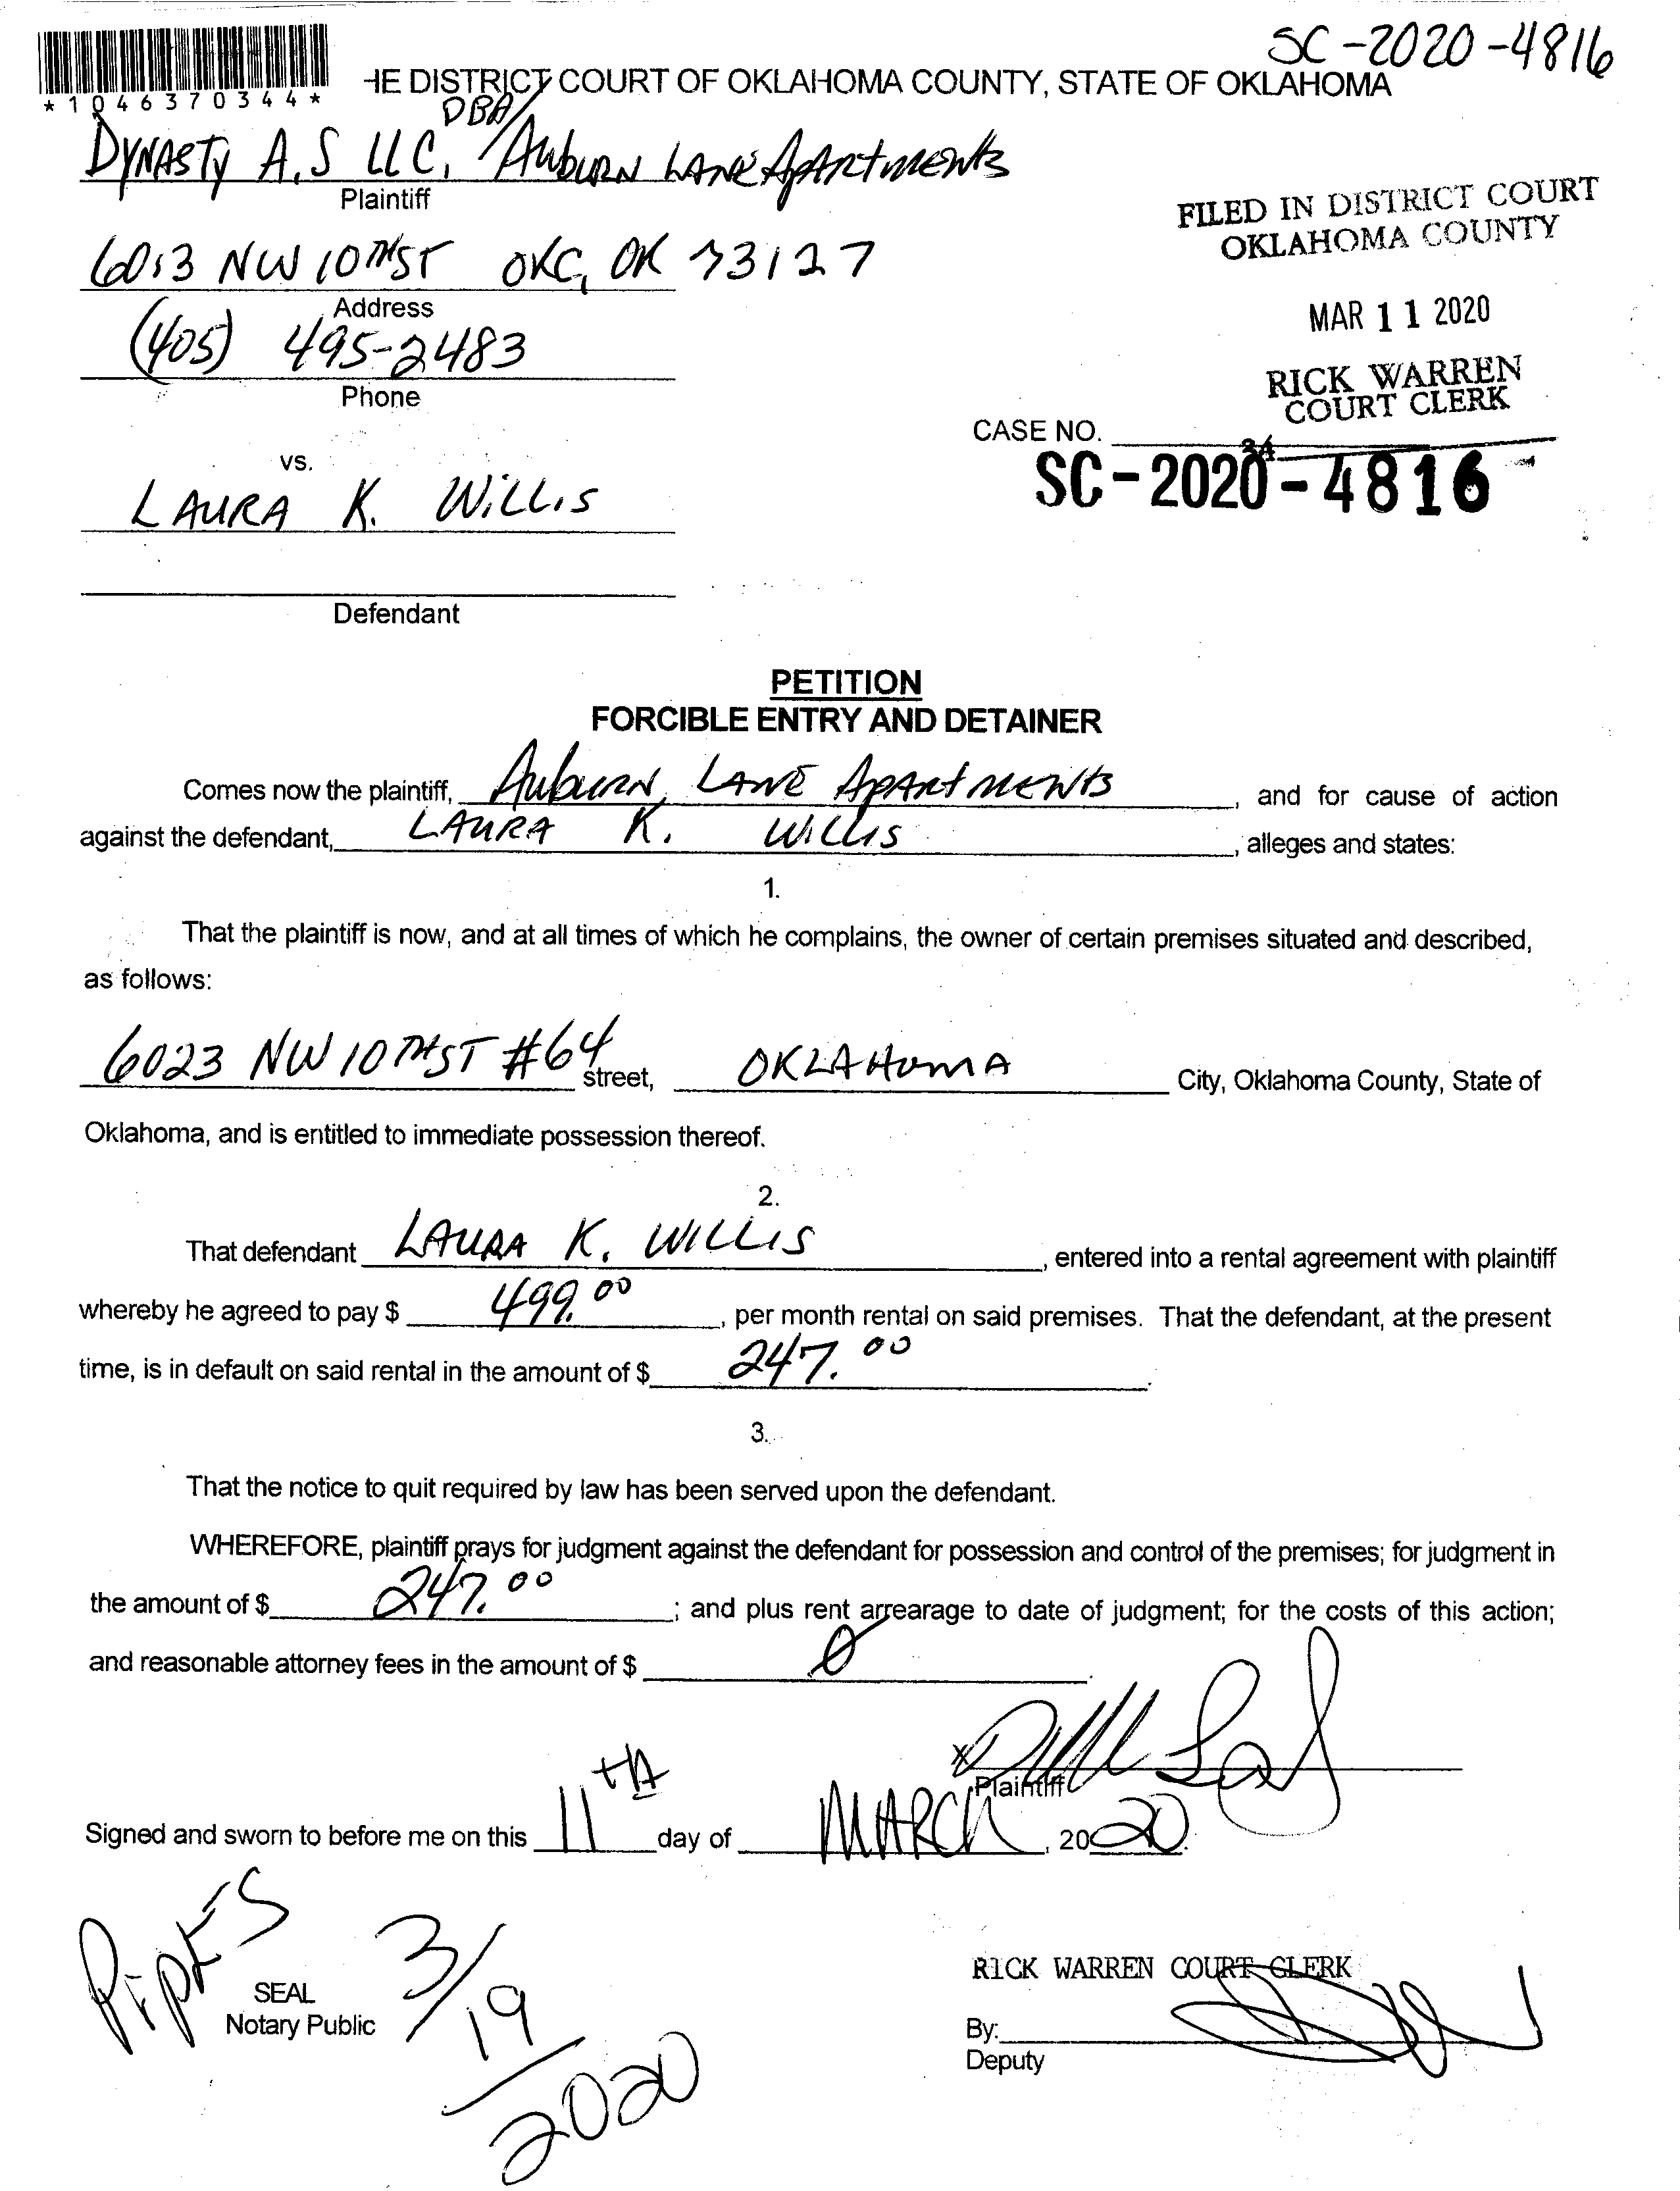 SC-2020-4816
*1046370344*
HE DISTRICT COURT OF OKLAHOMA COUNTY, STATE OF OKLAHOMA
DBA/
DYNASTY A.S LLC, AUBURN LANE APARTMENTS
Plaintiff
FILED IN DISTRICT COURT
OKLAHOMA COUNTY
6013 NW 10TH ST OKC, OK 73127
Address
MAR 11 2020
(405) 495-2483
Phone
RICK WARREN
COURT CLERK
CASE NO.
34
SC-2020-4816
vs.
LAURA K. WILLIS
Defendant
PETITION
FORCIBLE ENTRY AND DETAINER
Comes now the plaintiff, AUBURN LANE APARTMENTS, and for cause of action
against the defendant, LAURA K. WILLIS, alleges and states:
1.
That the plaintiff is now, and at all times of which he complains, the owner of certain premises situated and described,
as follows:
6023 NW 10TH ST #64 street, OKLAHOMA City, Oklahoma County, State of
Oklahoma, and is entitled to immediate possession thereof.
2.
That defendant LAURA K. WILLIS, entered into a rental agreement with plaintiff
whereby he agreed to pay $ 499.00, per month rental on said premises. That the defendant, at the present
time, is in default on said rental in the amount of $ 247.00.
3.
That the notice to quit required by law has been served upon the defendant.
WHEREFORE, plaintiff prays for judgment against the defendant for possession and control of the premises; for judgment in
the amount of $ 247.00; and plus rent arrearage to date of judgment; for the costs of this action;
and reasonable attorney fees in the amount of $ 0.
X
Plaintiff
Signed and sworn to before me on this 11th day of MARCH, 2020.
PipKES
3/19/2020
SEAL
Notary Public
RICK WARREN COURT CLERK
By:
Deputy